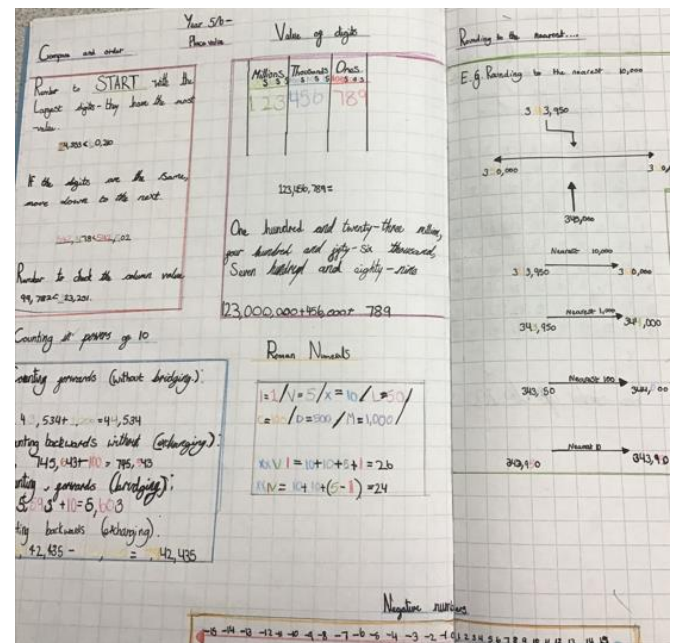 Year 5/6-
Place value
Compare and order
START with the
Largest digits - they have the most
value.
If the digits are the same,
move down to the next.
to check the column value
99, 782< 23,201.
Counting in powers of 10
Counting forwards (without bridging.):
,534+ =44,534
backwards without (exchanging):
745, 643+ 100 = 745, 543
forwards (bridging):
5,593 +10=5,603
backwards (exchanging):
42,435 - = 42,435
Value of digits
Millions Thousands Ones
123 456 789
123,456, 789=
One hundred and twenty-three million,
four hundred and fifty-six thousand,
Seven hundred and eighty-nine
123,000,000+456,000+ 789
Roman Numerals
I=1/V=5/X=10/L=50/
C=100/D=500/M=1,000/
XXVI=10+10+5+1=26
XXIV=10+10+(5-1)=24
Rounding to the nearest....
E.G. Rounding to the nearest 10,000
3 3,950
3 0,000
345,000
Nearest 10,000
3 3,950
3 0,000
Nearest 1,000
343,950
344,000
Nearest 100
343, 50
344, 00
Nearest 10
343,9 0
343,950
Negative numbers
-15 -14 -13 -12 -11 -10 -9 -8 -7 -6 -5 -4 -3 -2 -1 0 1 2 3 4 5 6 7 8 9 10 11 12 13 14 15